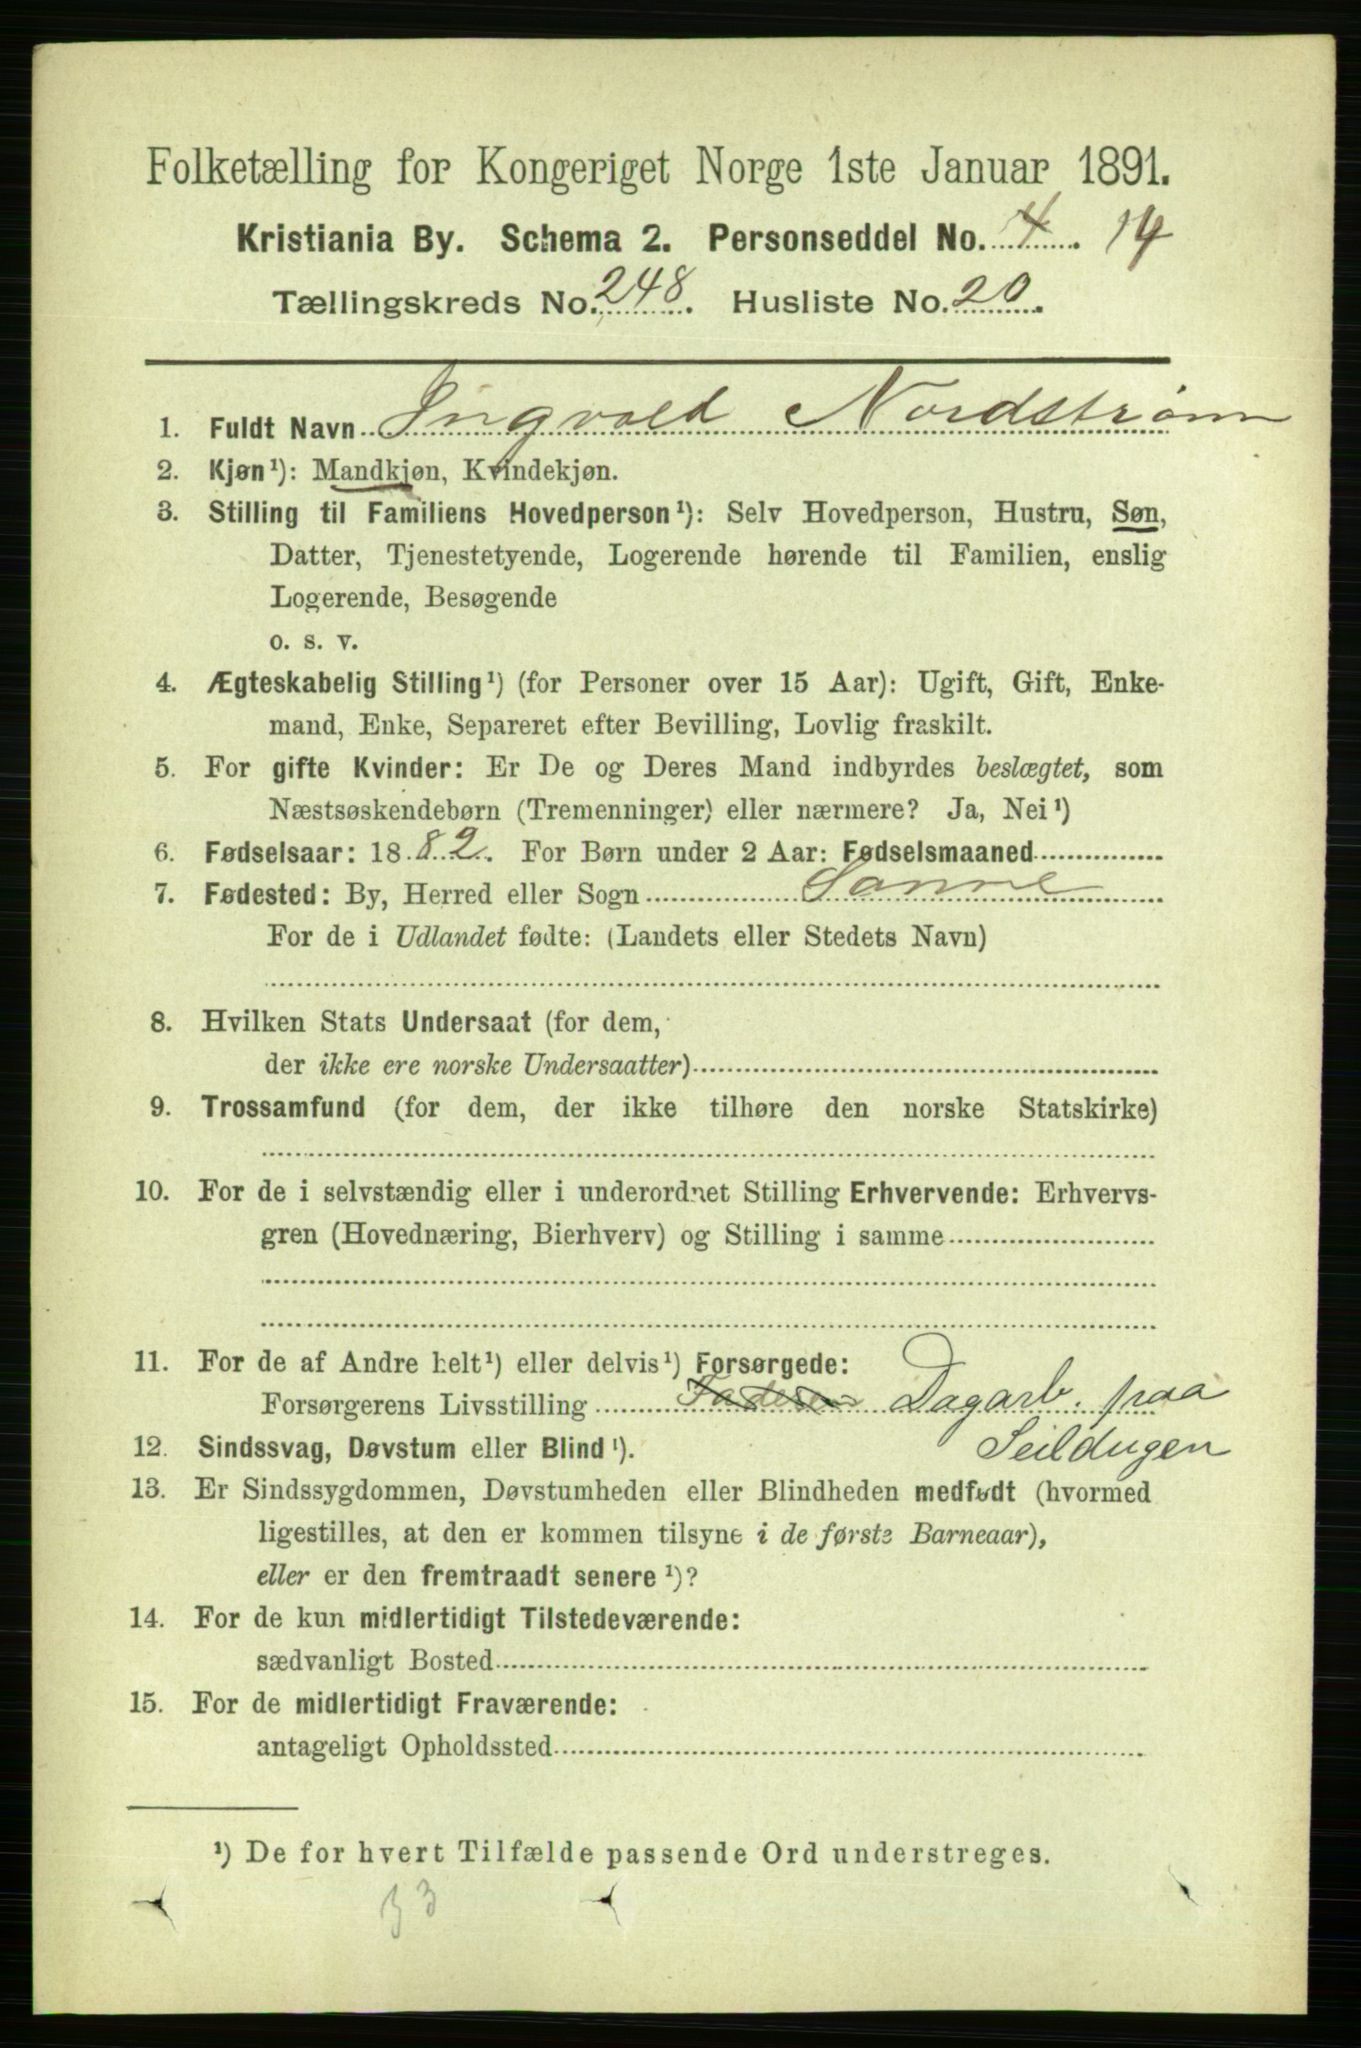 Folketælling for Kongeriget Norge 1ste Januar 1891.
Kristiania By. Schema 2. Personseddel No. 4. 14
Tællingskreds No. 248. Husliste No. 20.
1. Fuldt Navn Ingvald Nordstrøm
2. Kjøn¹): Mandkjøn, Kvindekjøn.
3. Stilling til Familiens Hovedperson¹): Selv Hovedperson, Hustru, Søn,
Datter, Tjenestetyende, Logerende hørende til Familien, enslig
Logerende, Besøgende
o. s. v.
4. Ægteskabelig Stilling¹) (for Personer over 15 Aar): Ugift, Gift, Enke-
mand, Enke, Separeret efter Bevilling, Lovlig fraskilt.
5. For gifte Kvinder: Er De og Deres Mand indbyrdes beslægtet, som
Næstsøskendebørn (Tremenninger) eller nærmere? Ja, Nei¹)
6. Fødselsaar: 1882. For Børn under 2 Aar: Fødselsmaaned
7. Fødested: By, Herred eller Sogn Samme
For de i Udlandet fødte: (Landets eller Stedets Navn)
8. Hvilken Stats Undersaat (for dem,
der ikke ere norske Undersaatter)
9. Trossamfund (for dem, der ikke tilhøre den norske Statskirke)
10. For de i selvstændig eller i underordnet Stilling Erhvervende: Erhvervs-
gren (Hovednæring, Bierhverv) og Stilling i samme
11. For de af Andre helt¹) eller delvis¹) Forsørgede:
Forsørgerens Livsstilling Faderen Dagarb. paa
Seildugen
12. Sindssvag, Døvstum eller Blind¹).
13. Er Sindssygdommen, Døvstumheden eller Blindheden medfødt (hvormed
ligestilles, at den er kommen tilsyne i de første Barneaar),
eller er den fremtraadt senere¹)?
14. For de kun midlertidigt Tilstedeværende:
sædvanligt Bosted
15. For de midlertidigt Fraværende:
antageligt Opholdssted
¹) De for hvert Tilfælde passende Ord understreges.
33